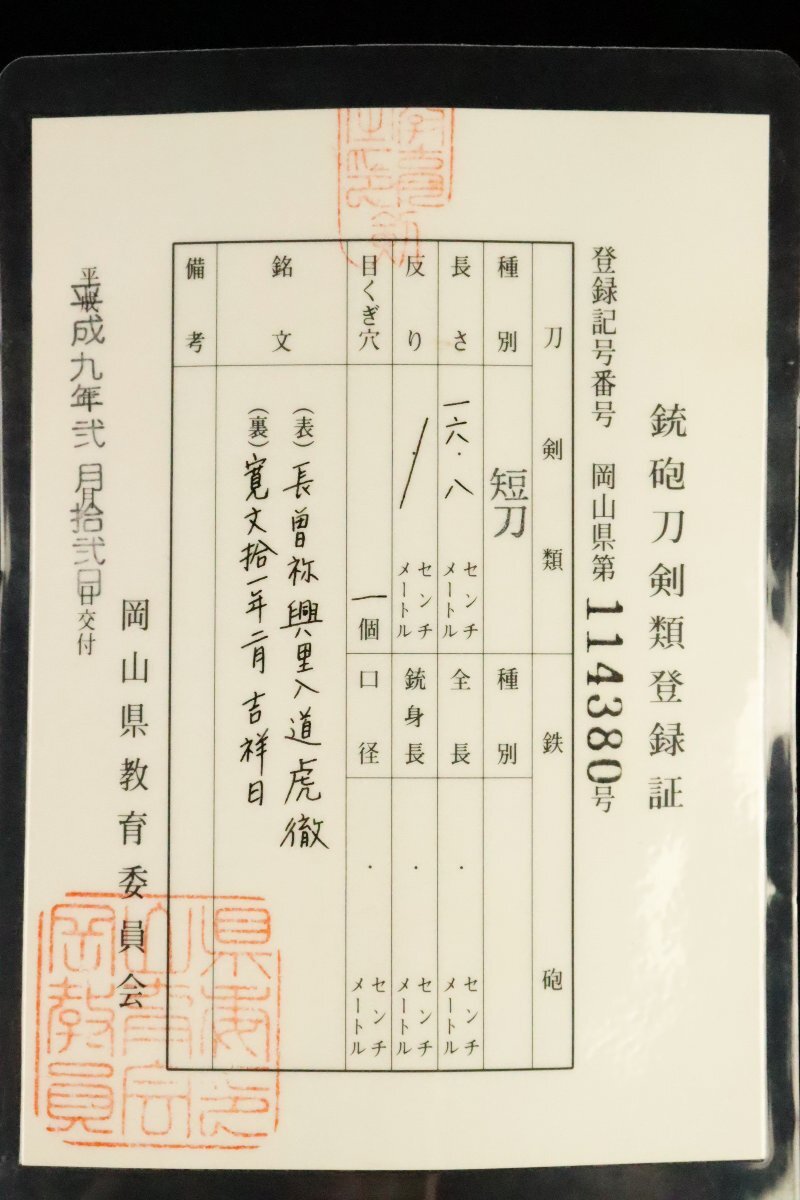 銃砲刀剣類登録証
登録記号番号 岡山県第114380号
刀剣類
鉄砲
種別 短刀
種別
長さ 一六.八 センチメートル
全長 . センチメートル
反り / . センチメートル
銃身長 . センチメートル
目くぎ穴 一個
口径 . センチメートル
銘文
(表)長曽祢興里入道虎徹
(裏)寛文拾一年二月吉祥日
備考
平成九年弐月拾弐日交付
岡山県教育委員会